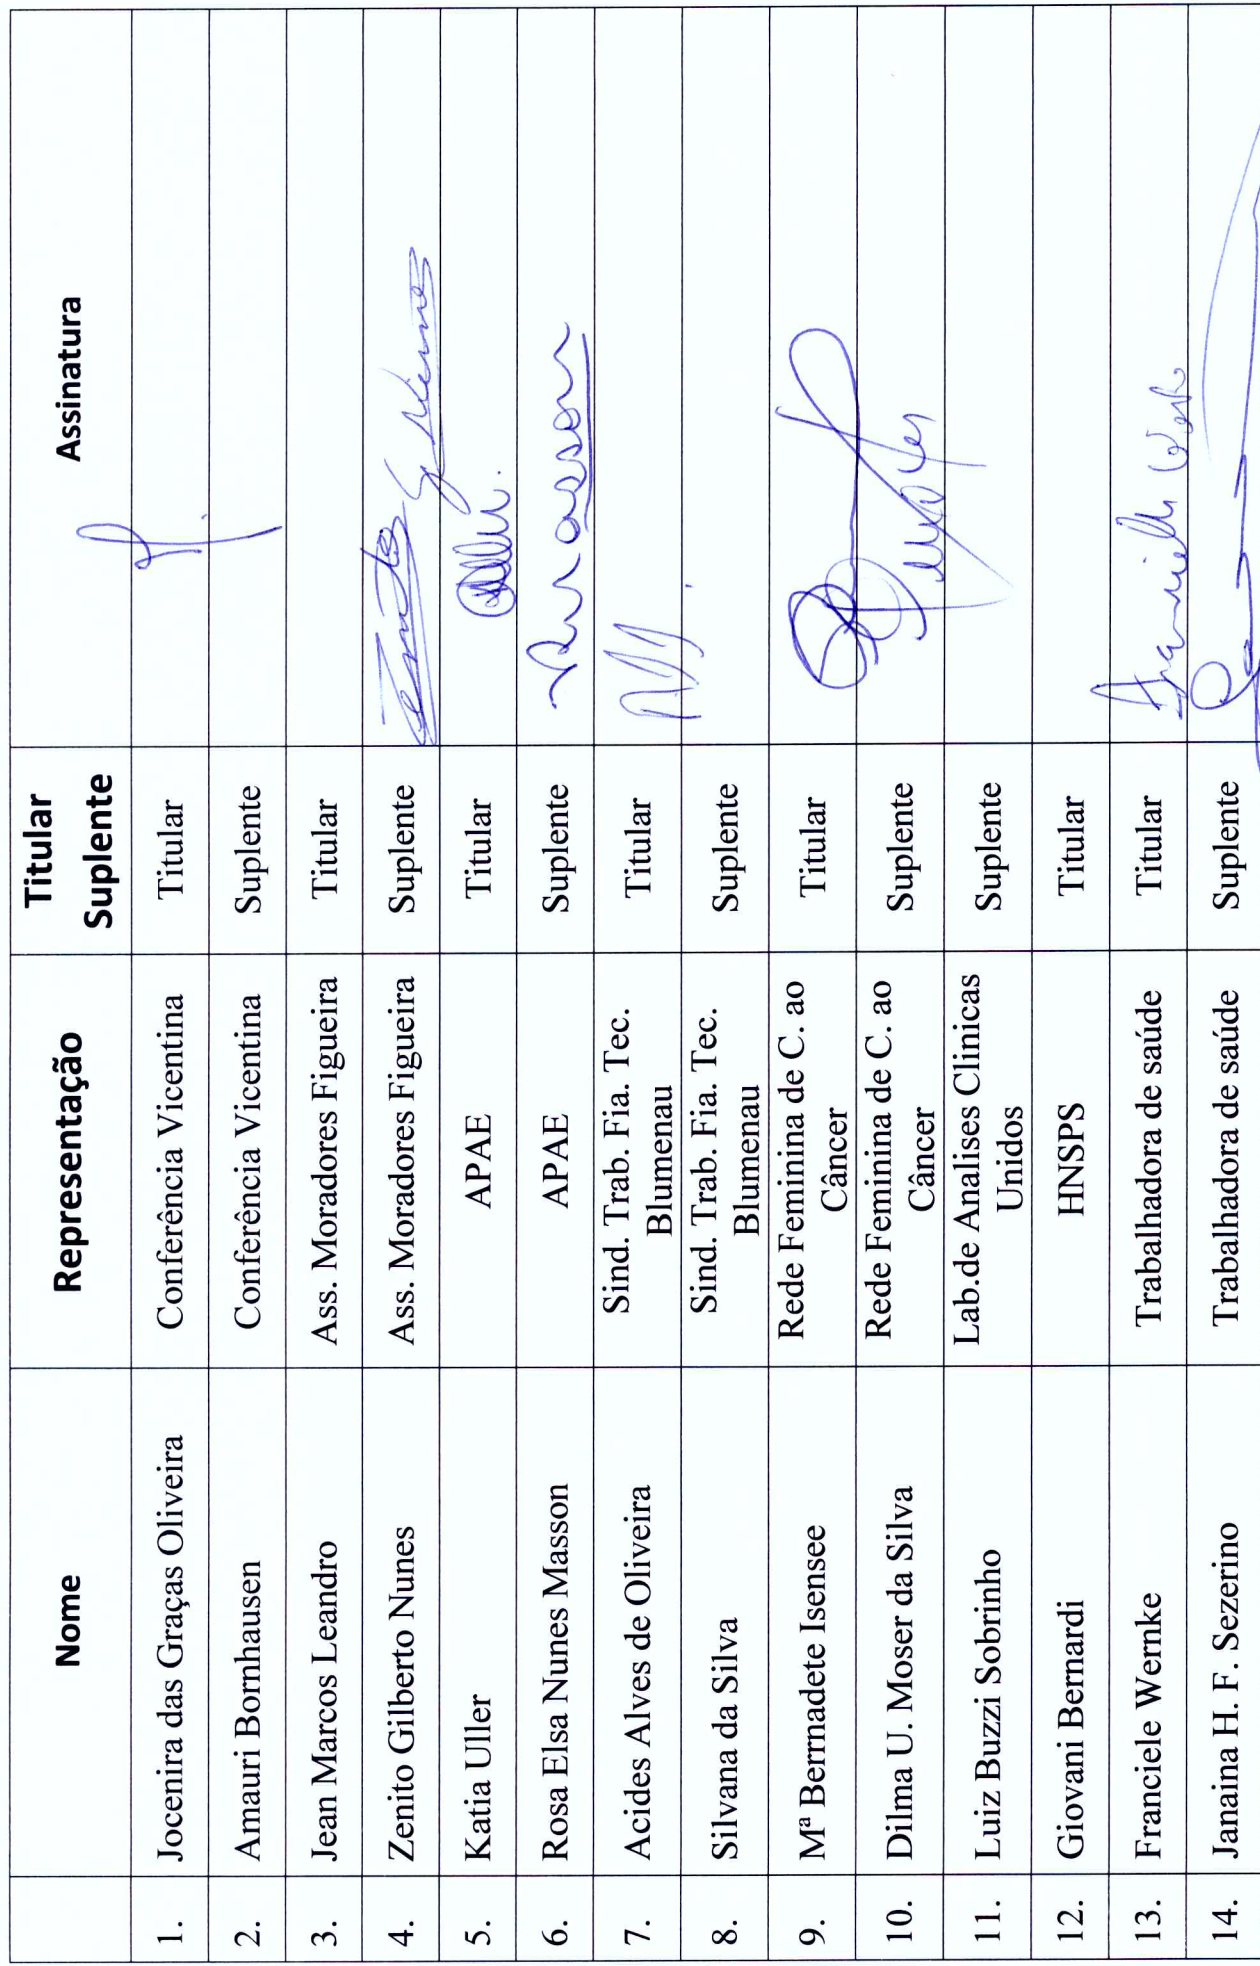 Nome Representação Titular Assinatura
Suplente
1. Jocenira das Graças Oliveira Conferência Vicentina Titular
2. Amauri Bornhausen Conferência Vicentina Suplente
3. Jean Marcos Leandro Ass. Moradores Figueira Titular
4. Zenito Gilberto Nunes Ass. Moradores Figueira Suplente
5. Katia Uller APAE Titular
6. Rosa Elsa Nunes Masson APAE Suplente
7. Acides Alves de Oliveira Sind. Trab. Fia. Tec. Titular
Blumenau
8. Silvana da Silva Sind. Trab. Fia. Tec. Suplente
Blumenau
9. Mª Berrnadete Isensee Rede Feminina de C. ao Titular
Câncer
10. Dilma U. Moser da Silva Rede Feminina de C. ao Suplente
Câncer
11. Luiz Buzzi Sobrinho Lab.de Analises Clinicas Suplente
Unidos
12. Giovani Bernardi HNSPS Titular
13. Franciele Wernke Trabalhadora de saúde Titular
14. Janaina H. F. Sezerino Trabalhadora de saúde Suplente